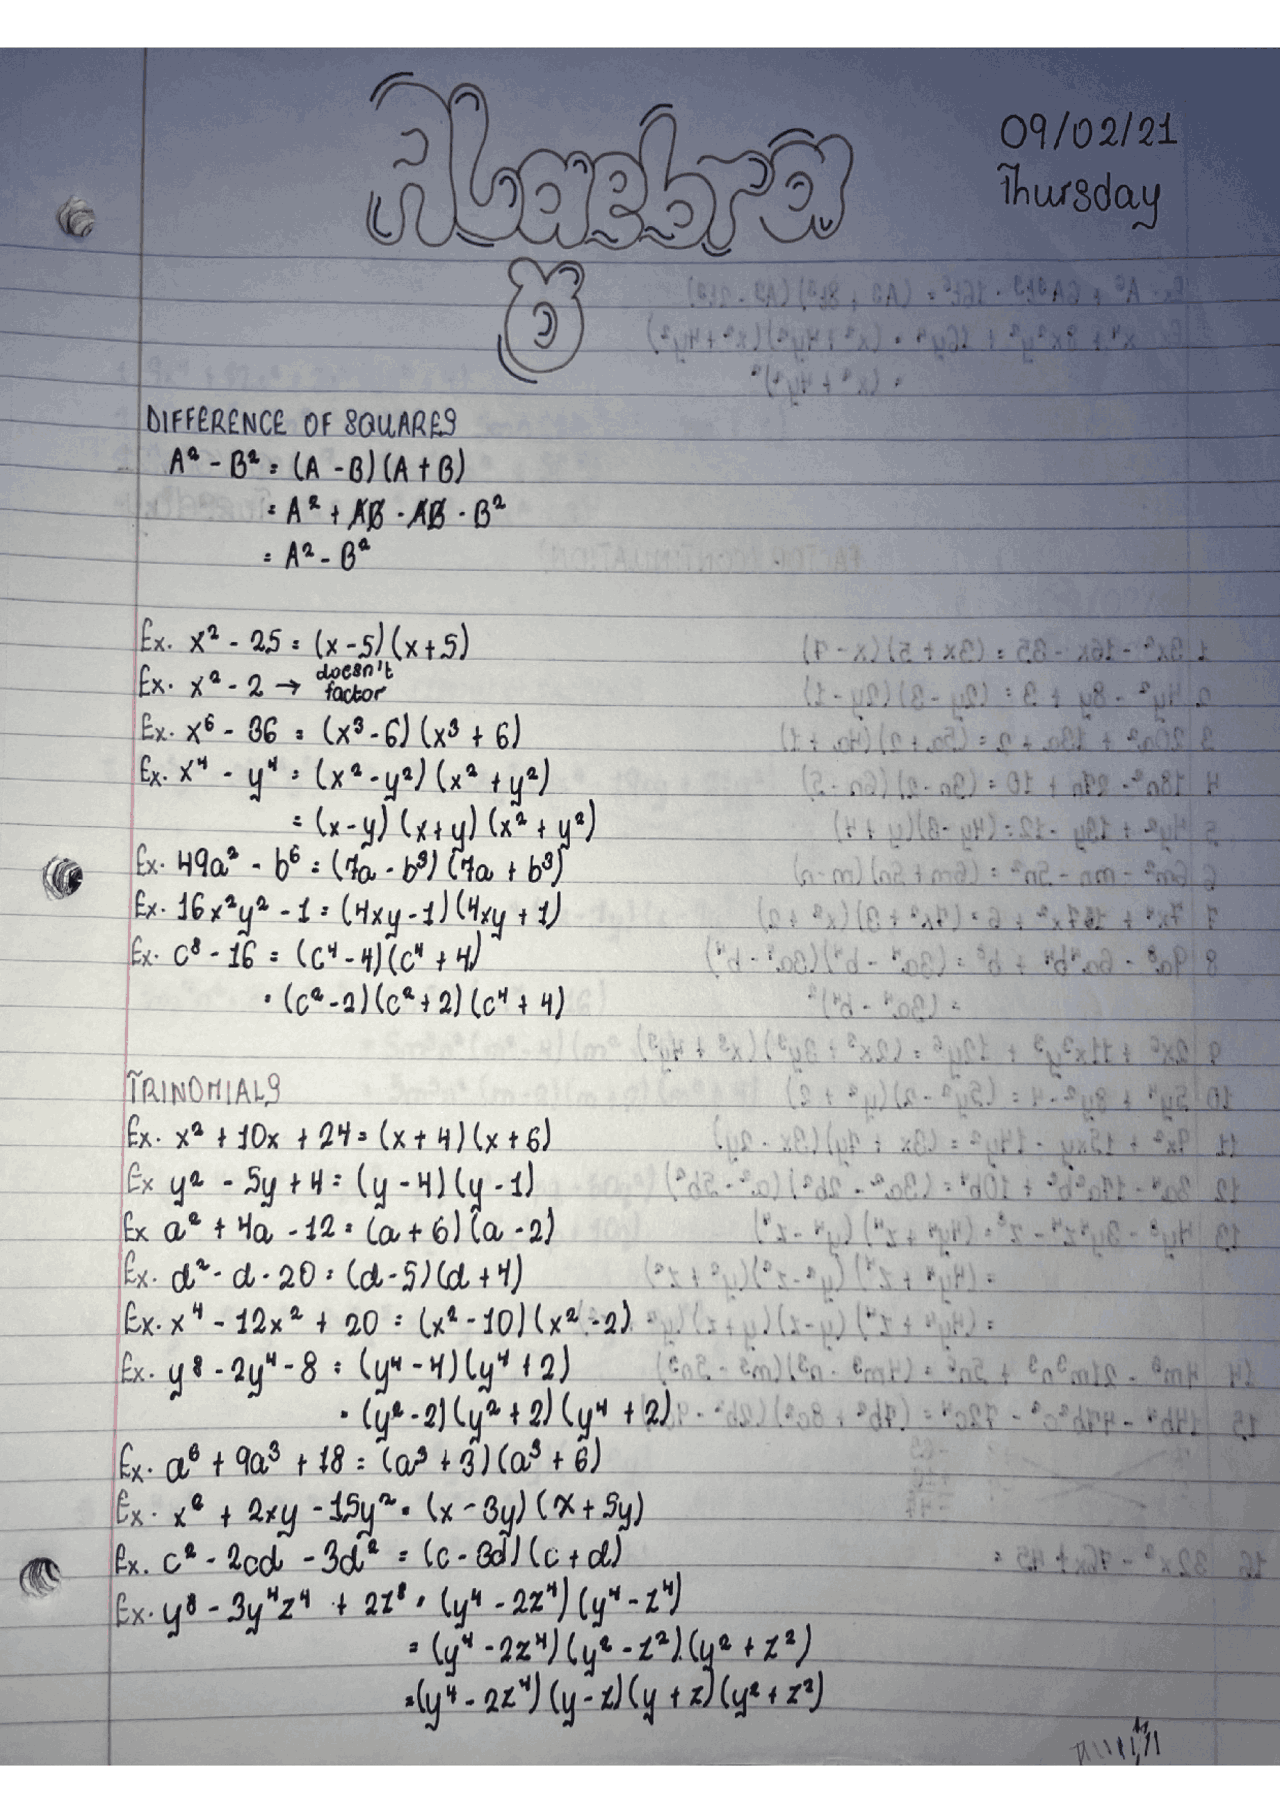 Algebra
09/02/21
Thursday
DIFFERENCE OF SQUARES
A² - B² = (A - B)(A + B)
= A² + AB - AB - B²
= A² - B²
Ex. x² - 25 = (x - 5)(x + 5)
Ex. x² - 2 → doesn't factor
Ex. x⁶ - 36 = (x³ - 6)(x³ + 6)
Ex. x⁴ - y⁴ = (x² - y²)(x² + y²)
= (x - y)(x + y)(x² + y²)
Ex. 49a² - b⁶ = (7a - b³)(7a + b³)
Ex. 16x²y² - 1 = (4xy - 1)(4xy + 1)
Ex. c⁸ - 16 = (c⁴ - 4)(c⁴ + 4)
= (c² - 2)(c² + 2)(c⁴ + 4)
TRINOMIALS
Ex. x² + 10x + 24 = (x + 4)(x + 6)
Ex y² - 5y + 4 = (y - 4)(y - 1)
Ex a² + 4a - 12 = (a + 6)(a - 2)
Ex. d² - d - 20 = (d - 5)(d + 4)
Ex. x⁴ - 12x² + 20 = (x² - 10)(x² - 2)
Ex. y⁸ - 2y⁴ - 8 = (y⁴ - 4)(y⁴ + 2)
= (y² - 2)(y² + 2)(y⁴ + 2)
Ex. a⁶ + 9a³ + 18 = (a³ + 3)(a³ + 6)
Ex. x² + 2xy - 15y² = (x - 3y)(x + 5y)
Ex. c² - 2cd - 3d² = (c - 3d)(c + d)
Ex. y⁸ - 3y⁴z⁴ + 2z⁸ = (y⁴ - 2z⁴)(y⁴ - z⁴)
= (y⁴ - 2z⁴)(y² - z²)(y² + z²)
= (y⁴ - 2z⁴)(y - z)(y + z)(y² + z²)